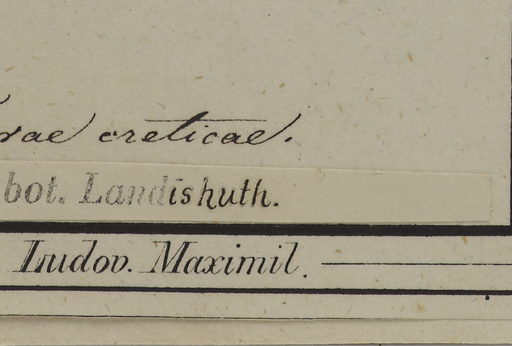 rae creticae.
bot. Landishuth.
Ludov. Maximil.